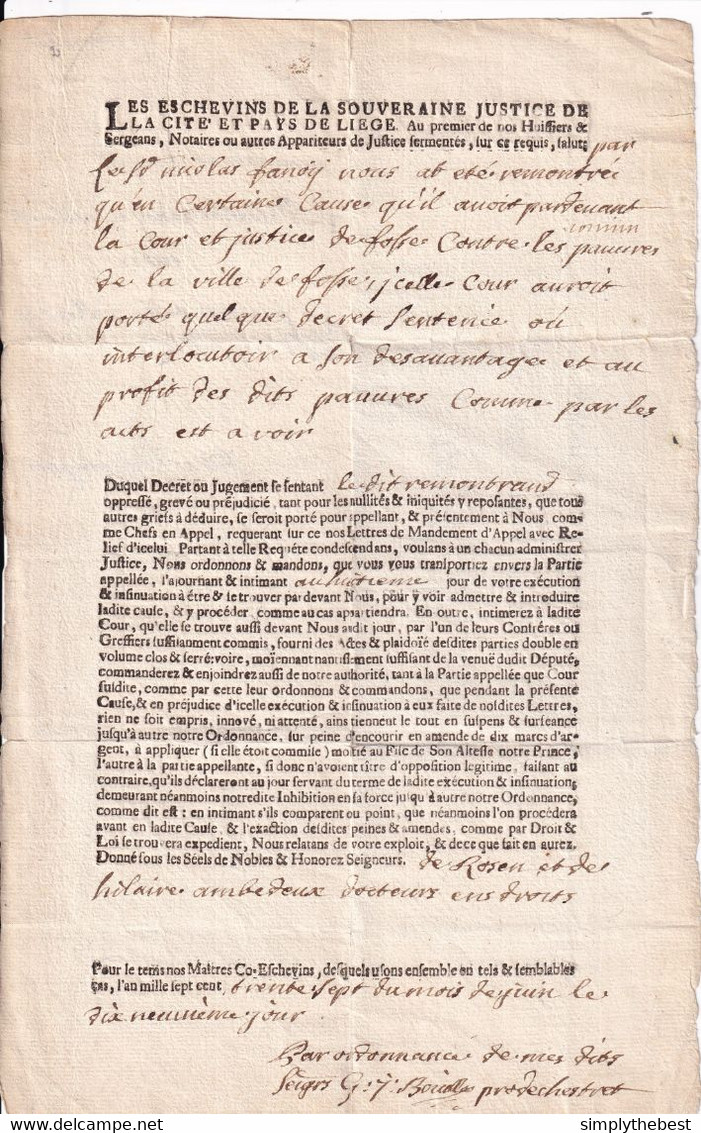 LES ESCHEVINS DE LA SOUVERAINE JUSTICE DE
LA CITE' ET PAYS DE LIEGE. Au premier de nos Huissiers &
Sergeans, Notaires ou autres Appariteurs de Justice sermentés, sur ce requis, salut; par
Le Sr nicolas fanoÿ nous at eté remontré
qu'en Certaine Cause qu'il avoit pardevant
la Cour et justice de fosse Contre les commun pauvres
de la ville de fosse, jcelle Cour auroit
porté quelque decret sentence ou
interlocutoir a son desavantage et au
profit des dits pauvres Comme par les
acts est a voir
Duquel Decret ou Jugement se sentant le dit remontrand
oppressé, grevé ou préjudicié, tant pour les nullités & iniquités y reposantes, que tous
autres griefs à déduire, se seroit porté pour appellant, & présentement à Nous, com-
me Chefs en Appel, requerant sur ce nos Lettres de Mandement d'Appel avec Re-
lief d'icelui. Partant à telle Requête condescendans, voulans à un chacun administrer
Justice, Nous ordonnons & mandons, que vous vous transportiez envers la Partie
appellée, l'ajournant & intimant au huitieme jour de votre exécution
& insinuation à être & se trouver pardevant Nous, pour y voir admettre & introduire
ladite cause, & y procéder, comme au cas appartiendra. En outre, intimerez à ladite
Cour, qu'elle se trouve aussi devant Nous audit jour, par l'un de leurs Contréres ou
Greffiers suffisanment commis, fourni des Actes & plaidoïé desdites parties double en
volume clos & serré, voire, moïennant nantissement suffisant de la venuë dudit Député,
commanderez & enjoindrez aussi de notre authorité, tant à la Partie appellée que Cour
susdite, comme par cette leur ordonnons & commandons, que pendant la présente
Cause, & en préjudice d'icelle exécution & insinuation à eux faite de nosdites Lettres,
rien ne soit empris, innové, ni attenté, ains tiennent le tout en suspens & surséance
jusqu'à autre notre Ordonnance, sur peine d'encourir en amende de dix marcs d'ar-
gent, à appliquer (si elle étoit commise) moitié au Fisc de Son Altesse notre Prince,
l'autre à la partie appellante, si donc n'avoient titre d'opposition legitime, faisant au
contraire, qu'ils déclareront au jour servant du terme de ladite exécution & insinuation,
demeurant néanmoins notredite Inhibition en sa force jusqu'à autre notre Ordonnance,
comme dit est: en intimant s'ils comparent ou point, que néanmoins l'on procédera
avant en ladite Cause, & l'exaction desdites peines & amendes, comme par Droit &
Loi se trouvera expedient, Nous relatans de votre exploit, & de ce que fait en aurez.
Donné sous les Séels de Nobles & Honorez Seigneurs. de Rosen et de
hilaire ambedeux docteurs ens droits
Pour le tems nos Maîtres Co-Eschevins, desquels usons ensemble en tels & semblables
cas, l'an mille sept cent, trente sept du mois de juin le
dix neuvième jour
Par ordonnance de mes dits
Seigrs G: J: pro de chestret
simplythebest